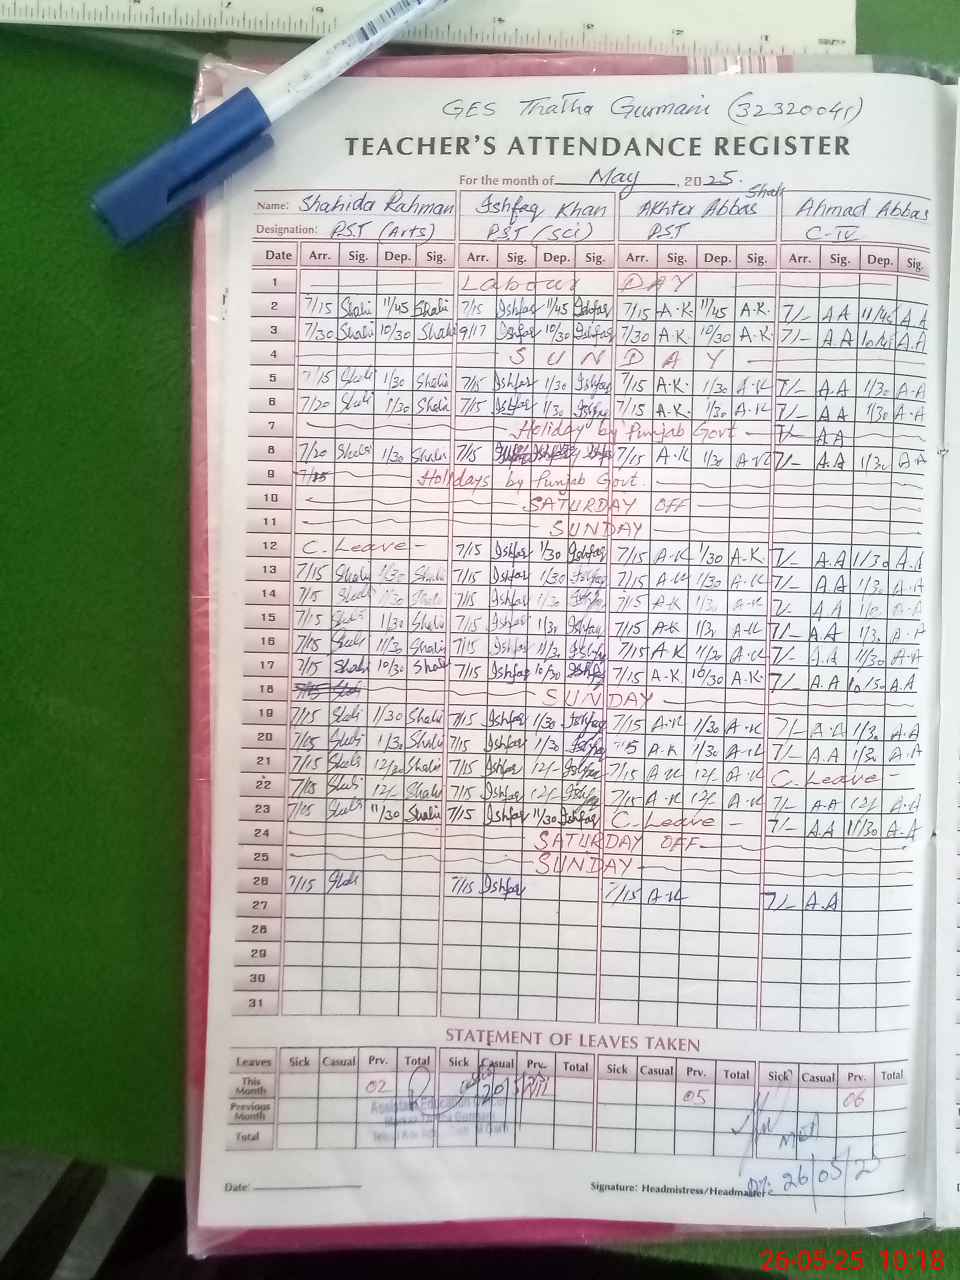 GES Thatha Gurmani (32320041)
TEACHER'S ATTENDANCE REGISTER
For the month of May, 2025.
Name: Shahida Rahman Ishfaq Khan Akhter Abbas Shah Ahmad Abbas
Designation: P.S.T (Arts) P.S.T (Sci) P.S.T C-IV
Date Arr. Sig. Dep. Sig. Arr. Sig. Dep. Sig. Arr. Sig. Dep. Sig. Arr. Sig. Dep. Sig.
1 Labour DAY
2 7/15 Shahi 11/45 Shahi 7/15 Ishfaq 11/45 Ishfaq 7/15 A-K 11/45 A-K. 7/- A A 11/45 A A
3 7/30 Shahi 10/30 Shahi Ishfaq 10/30 Ishfaq 7/30 A.K. 10/30 A-K. 7/- A.A A.A
4 SUNDAY
5 7/15 Shahi 1/30 Shahi 7/15 Ishfaq 1/30 Ishfaq 7/15 A.K. 1/30 A-K 7/- A.A 1/30 A-A
6 7/20 Shahi 1/30 Shahi 7/15 Ishfaq 1/30 Ishfaq 7/15 A.K. 1/30 A-K. 7/- AA 1/30 A-A
7 Holiday by Punjab Govt 7/- AA
8 7/20 Shahi 1/30 Shahi 7/15 7/15 A-K 1/30 A-K 7/- A.A 1/30 A A
9 Holidays by Punjab Govt.
10 SATURDAY OFF
11 SUNDAY
12 C. Leave - 7/15 Ishfaq 1/30 Ishfaq 7/15 A-K 1/30 A-K. 7/- A.A 1/30 A.A
13 7/15 Shahi 1/30 Shahi 7/15 Ishfaq 1/30 Ishfaq 7/15 A-K 1/30 A-K 7/- AA 1/30 A-A
14 7/15 Shahi 1/30 Shahi 7/15 Ishfaq 1/30 Ishfaq 7/15 A-K 1/30 A-K 7/- AA A-A
15 7/15 Shahi 1/30 Shahi 7/15 Ishfaq 1/30 Ishfaq 7/15 A-K 1/30 A-K 7/- AA 1/30 A-A
16 7/15 Shahi 11/30 Shahi 7/15 Ishfaq 11/30 Ishfaq 7/15 A-K 11/30 A-K 7/- A.A 11/30 A-A
17 7/15 Shahi 10/30 Shahi 7/15 Ishfaq 10/30 Ishfaq 7/15 A-K. 10/30 A-K. 7/- A.A 10/30 A.A
18 SUNDAY
19 7/15 Shahi 1/30 Shahi 7/15 Ishfaq 1/30 Ishfaq 7/15 A-K 1/30 A-K 7/- A.A 1/30 A.A
20 7/05 Shahi 1/30 Shahi 7/15 Ishfaq 1/30 Ishfaq A-K 1/30 A-K 7/- A.A 1/30 A-A
21 7/15 Shahi Shahi 7/15 Ishfaq 12/- Ishfaq 7/15 A-K 12/- A-K C. Leave -
22 7/05 Shahi 12/- Shahi 7/15 Ishfaq 12/- Ishfaq 7/15 A-K 12/- A-K 7/- AA 12/- A-A
23 7/05 Shahi 11/30 Shahi 7/15 Ishfaq 11/30 Ishfaq C. Leave - 7/- AA 11/30 A-A
24 SATURDAY OFF
25 SUNDAY
26 7/15 Shahi 7/15 Ishfaq 7/15 A-K 7/- A.A
27
28
29
30
31
STATEMENT OF LEAVES TAKEN
Leaves Sick Casual Prv. Total Sick Casual Prv. Total Sick Casual Prv. Total Sick Casual Prv. Total
This Month 02 05 06
Previous Month
Total
Date: Signature: Headmistress/Headmaster
26/05/25
26-05-25 10:18